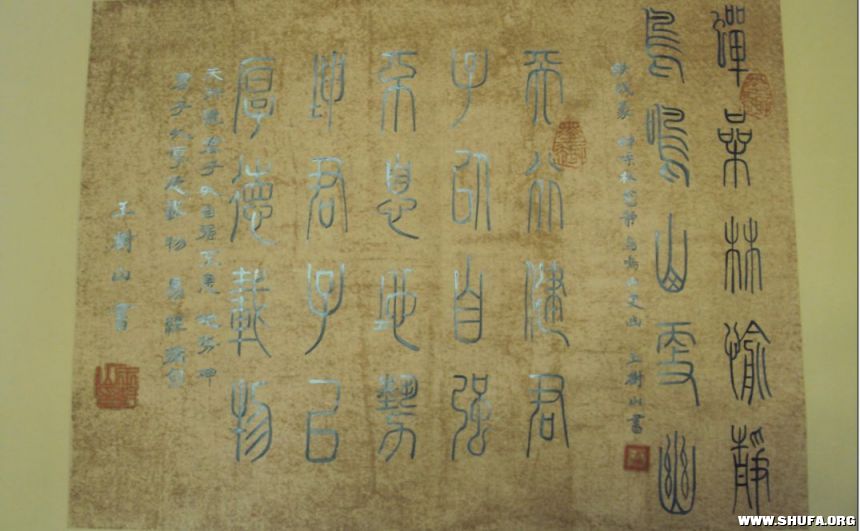 蟬噪林愉静
鳥鳴山更幽
蝉噪林愈静 鸟鸣山更幽 王樹山書
天行健君
子以自强
不息地勢
坤君子以
厚德載物
天行健君子以自强不息 地势坤
君子以厚德载物 易經
王樹山書
WWW.SHUFA.ORG